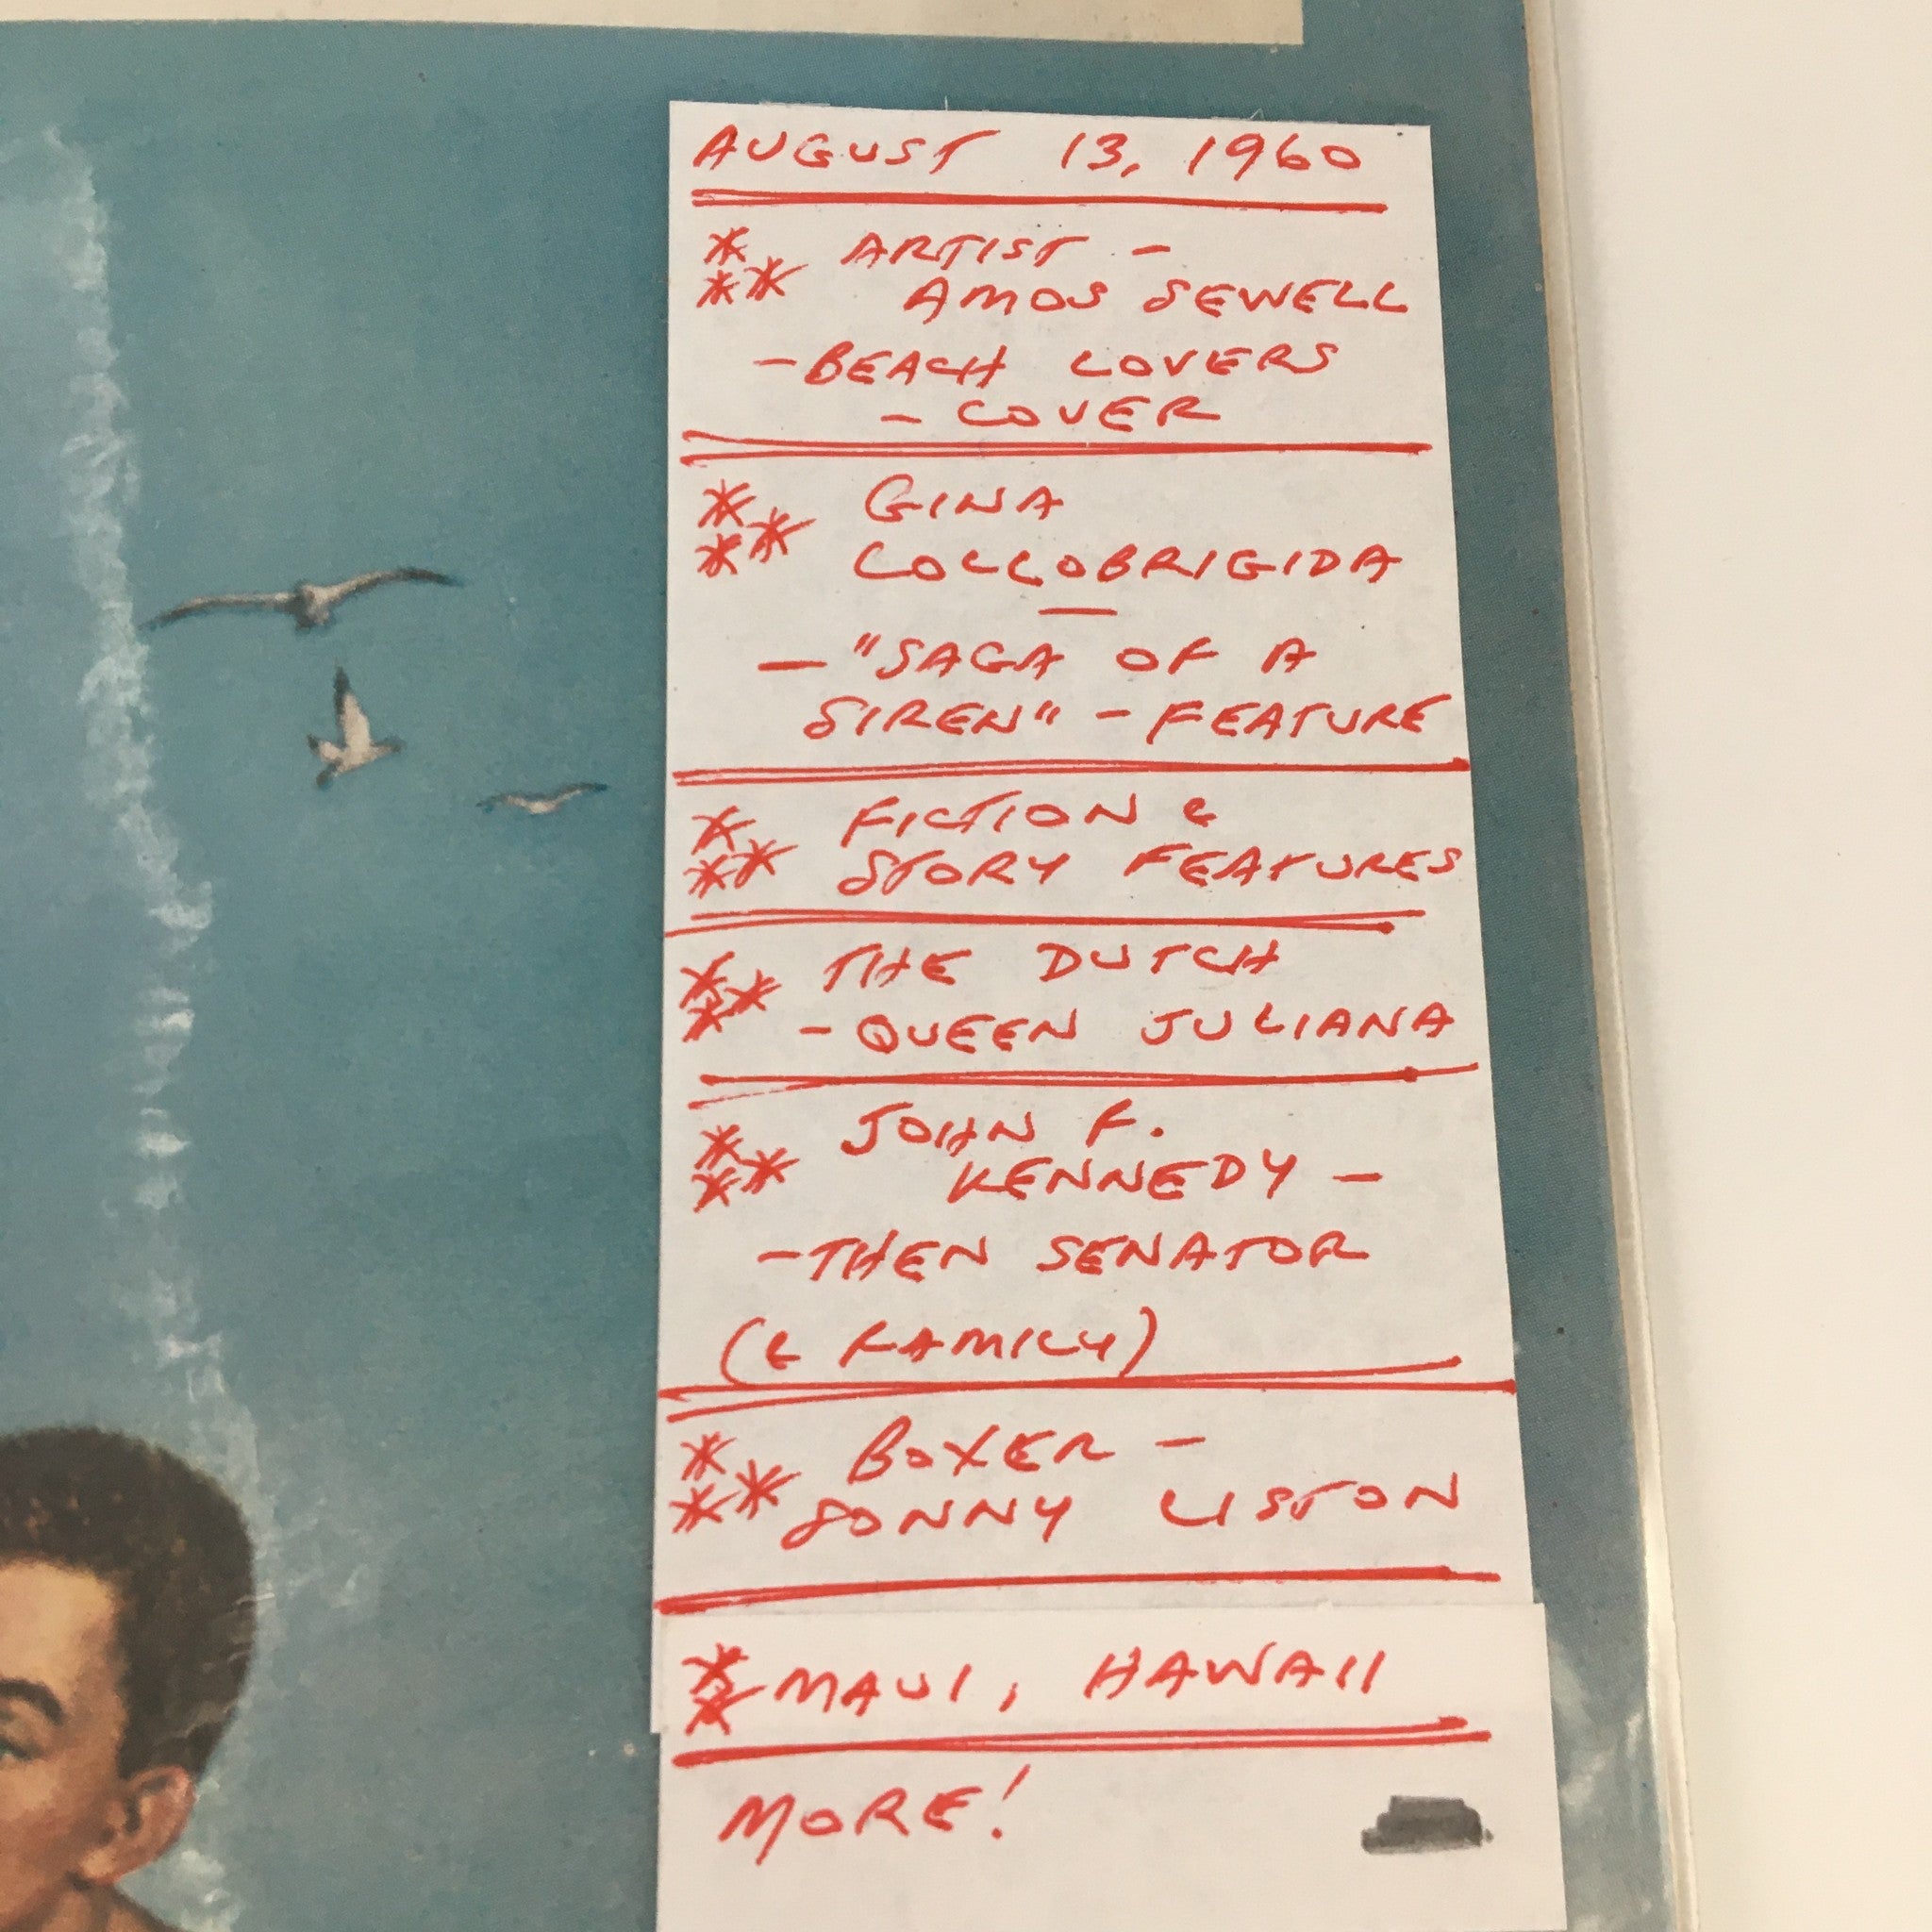 AUGUST 13, 1960
* ARTIST -
** AMOS SEWELL
- BEACH LOVERS
- COVER
* GINA
** LOLLOBRIGIDA
—
— "SAGA OF A
SIREN" - FEATURE
* FICTION &
** STORY FEATURES
* THE DUTCH
** - QUEEN JULIANA
* JOHN F.
** KENNEDY -
- THEN SENATOR
(& FAMILY)
* BOXER -
** SONNY LISTON
* MAUI, HAWAII
*
MORE!